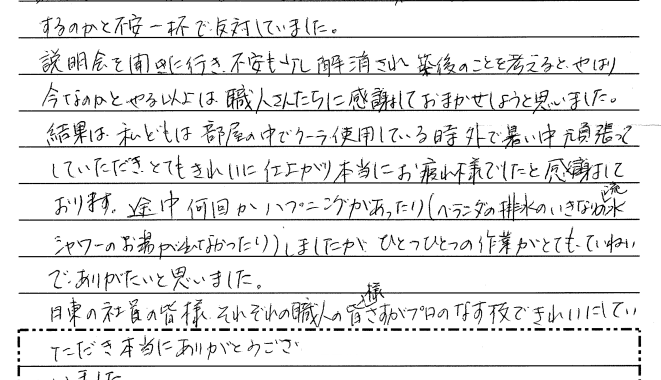 するのかと不安一杯で反対していました。
説明会を聞きに行き、不安も少し解消され、築後のことを考えると、やはり
今なのかと やる以上は、職人さんたちに感謝しておまかせしようと思いました。
結果は、私どもは部屋の中でクーラー使用している時、外で暑い中頑張って
していただき、とてもきれいに仕上がり本当にお疲れ様でしたと感謝して
おります。途中何回かハプニングがあったり(ベランダの排水のいきなり流水
シャワーのお湯が出なかったり)しましたが、ひとつひとつの作業がとてもていねい
で、ありがたいと思いました。
日東の社員の皆様、それぞれの職人の皆様さすがプロのなす技できれいにしてい
ただき本当にありがとうござ
いました